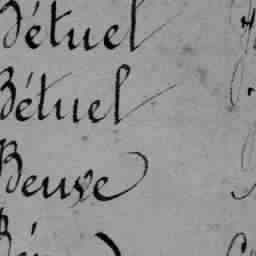 Bétuel
Bétuel
Beuve